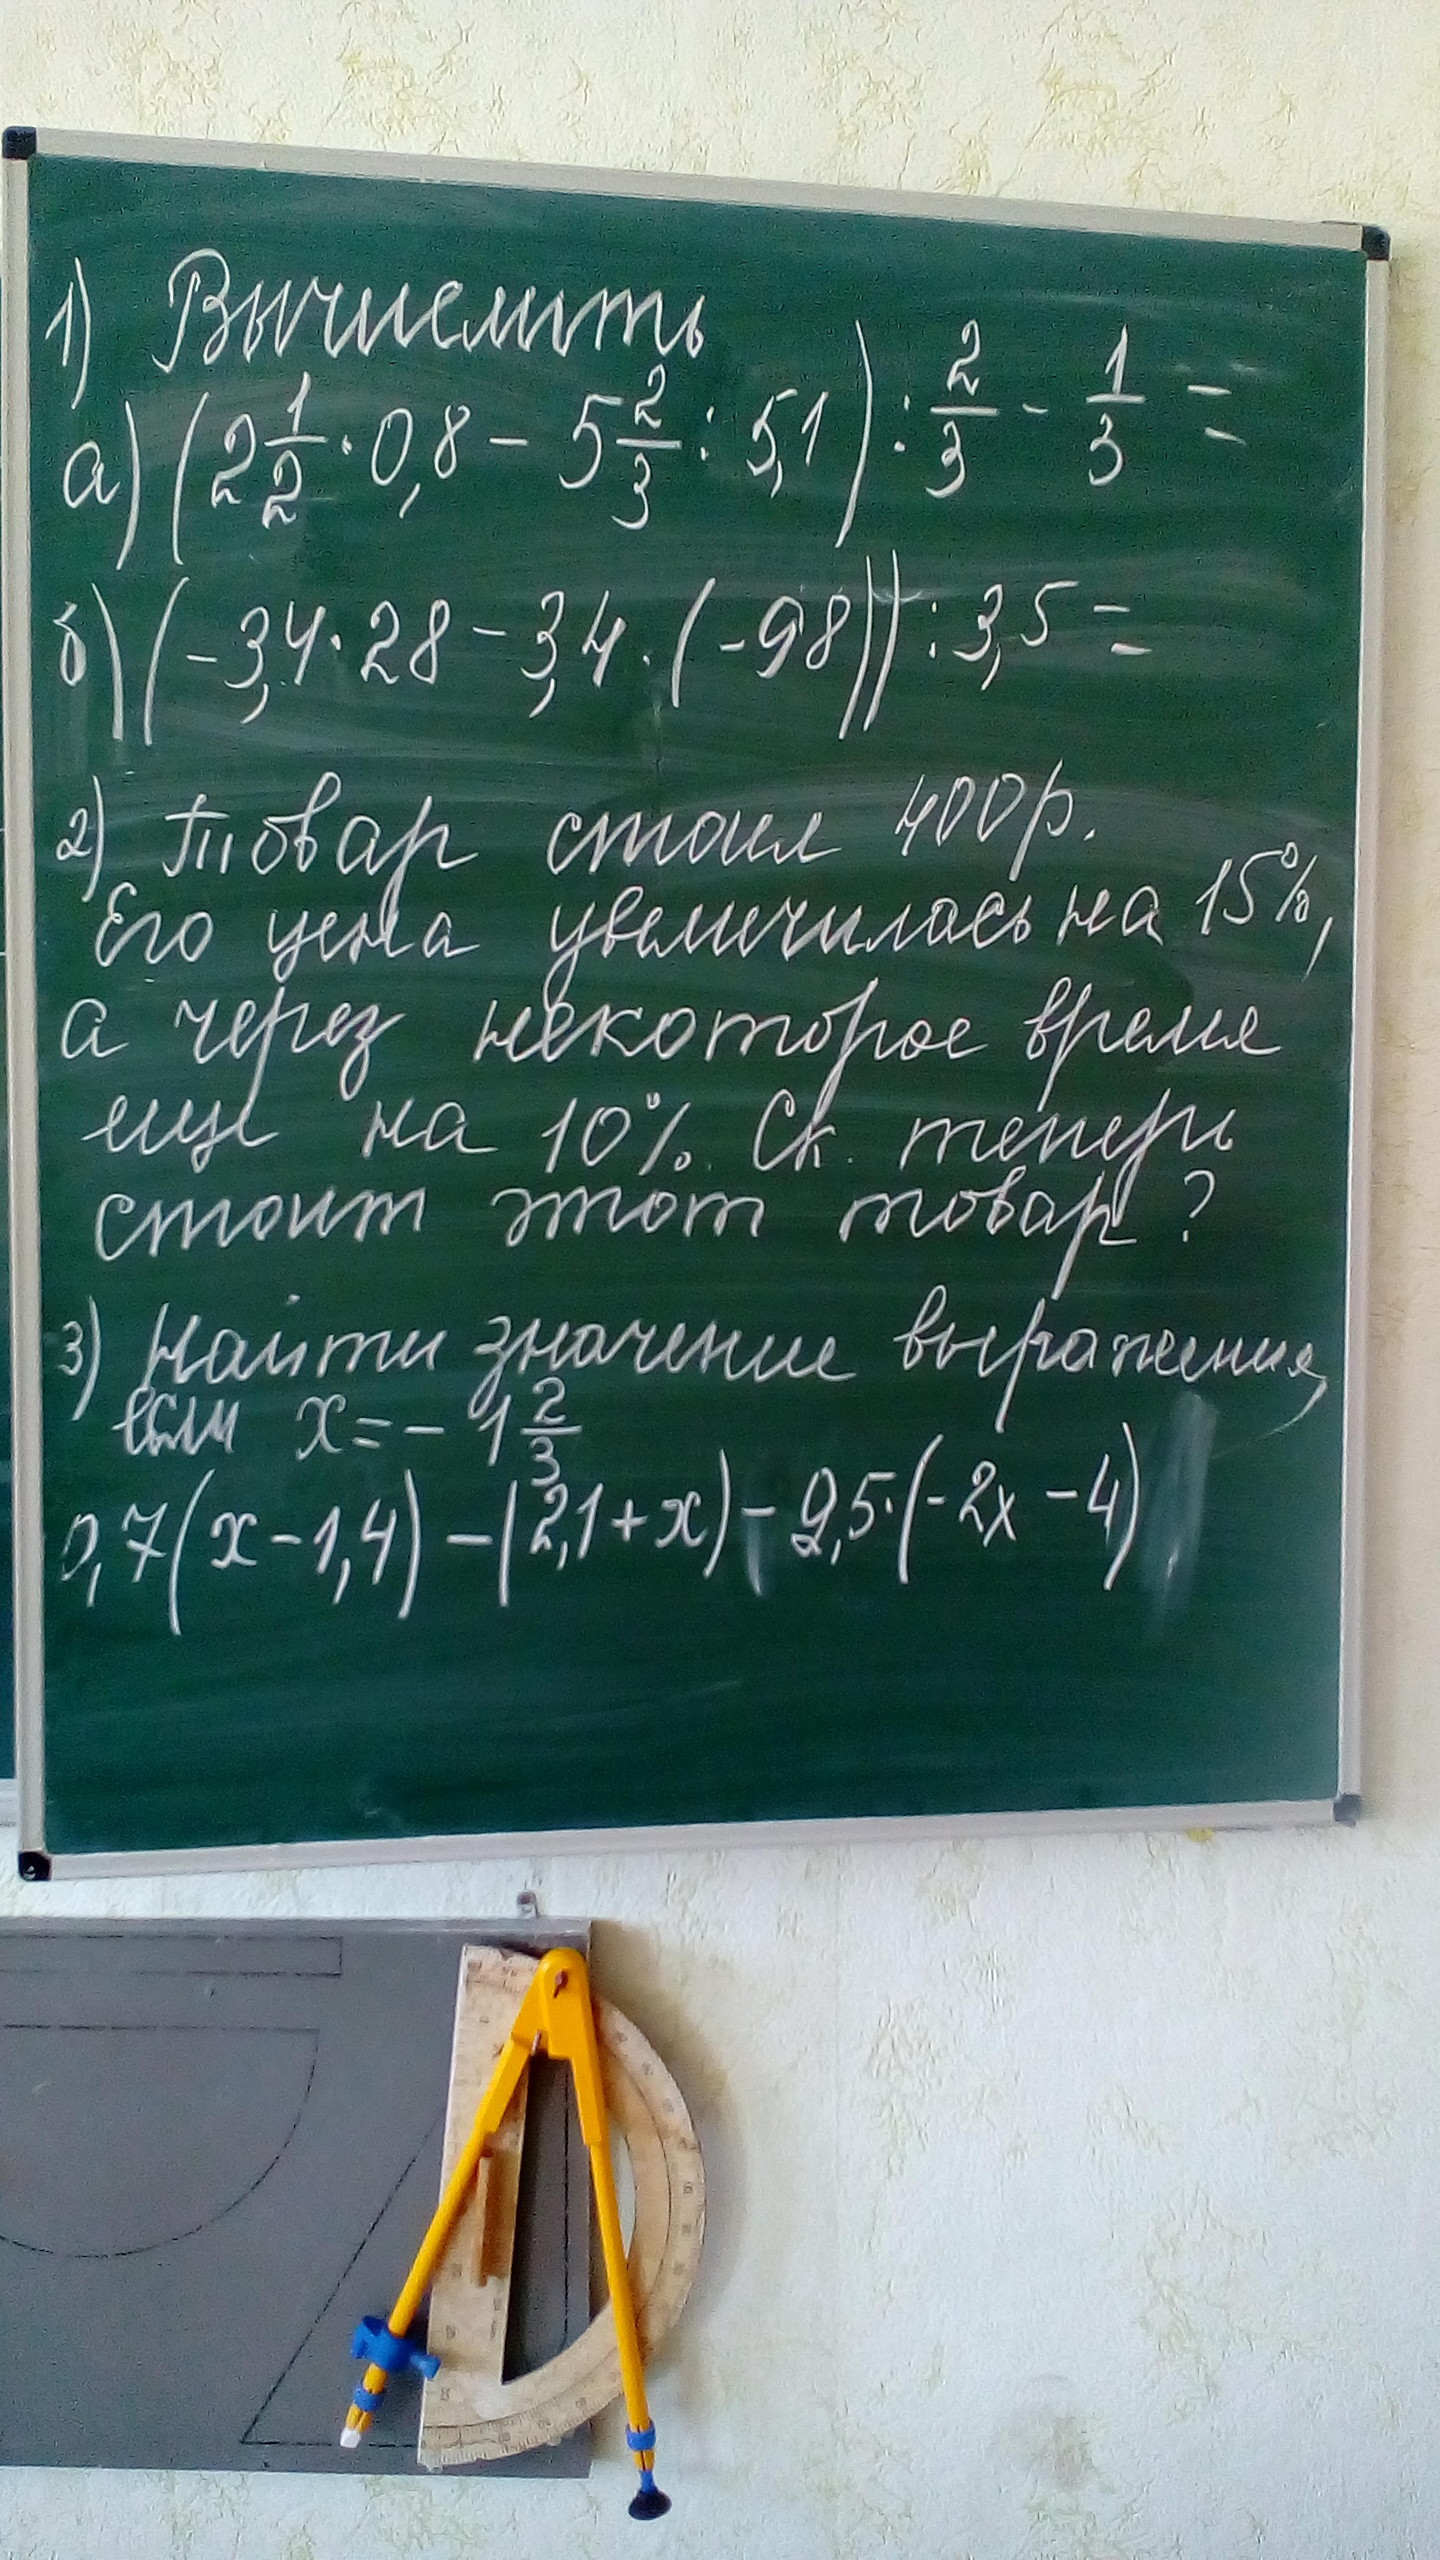 1) Вычислить
а) (2 1/2 · 0,8 - 5 2/3 : 5,1) : 2/3 - 1/3 =
б) (-3,4 · 28 - 3,4 · (-98)) : 3,5 =
2) Товар стоил 400р.
Его цена увеличилась на 15%,
а через некоторое время
еще на 10%. Ск. теперь
стоит этот товар?
3) Найти значение выражения,
если x = - 1 2/3
0,7(x - 1,4) - (2,1 + x) - 2,5 · (-2x - 4)